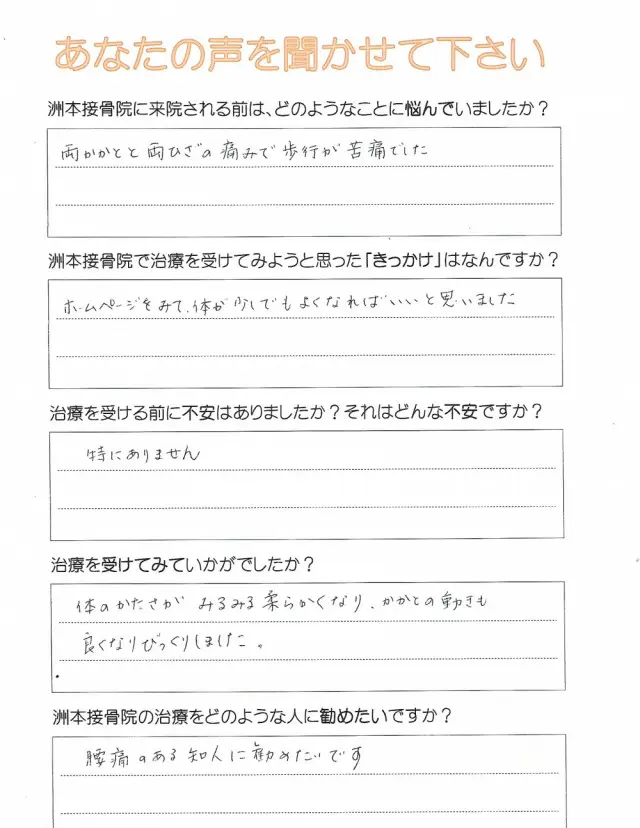 あなたの声を聞かせて下さい
洲本接骨院に来院される前は、どのようなことに悩んでいましたか？
両かかとと両ひざの痛みで歩行が苦痛でした
洲本接骨院で治療を受けてみようと思った「きっかけ」はなんですか？
ホームページをみて、体が少しでもよくなればいいと思いました
治療を受ける前に不安はありましたか？それはどんな不安ですか？
特にありません
治療を受けてみていかがでしたか？
体のかたさが みるみる柔らかくなり、かかとの動きも
良くなりびっくりしました。
洲本接骨院の治療をどのような人に勧めたいですか？
腰痛のある知人に勧めたいです